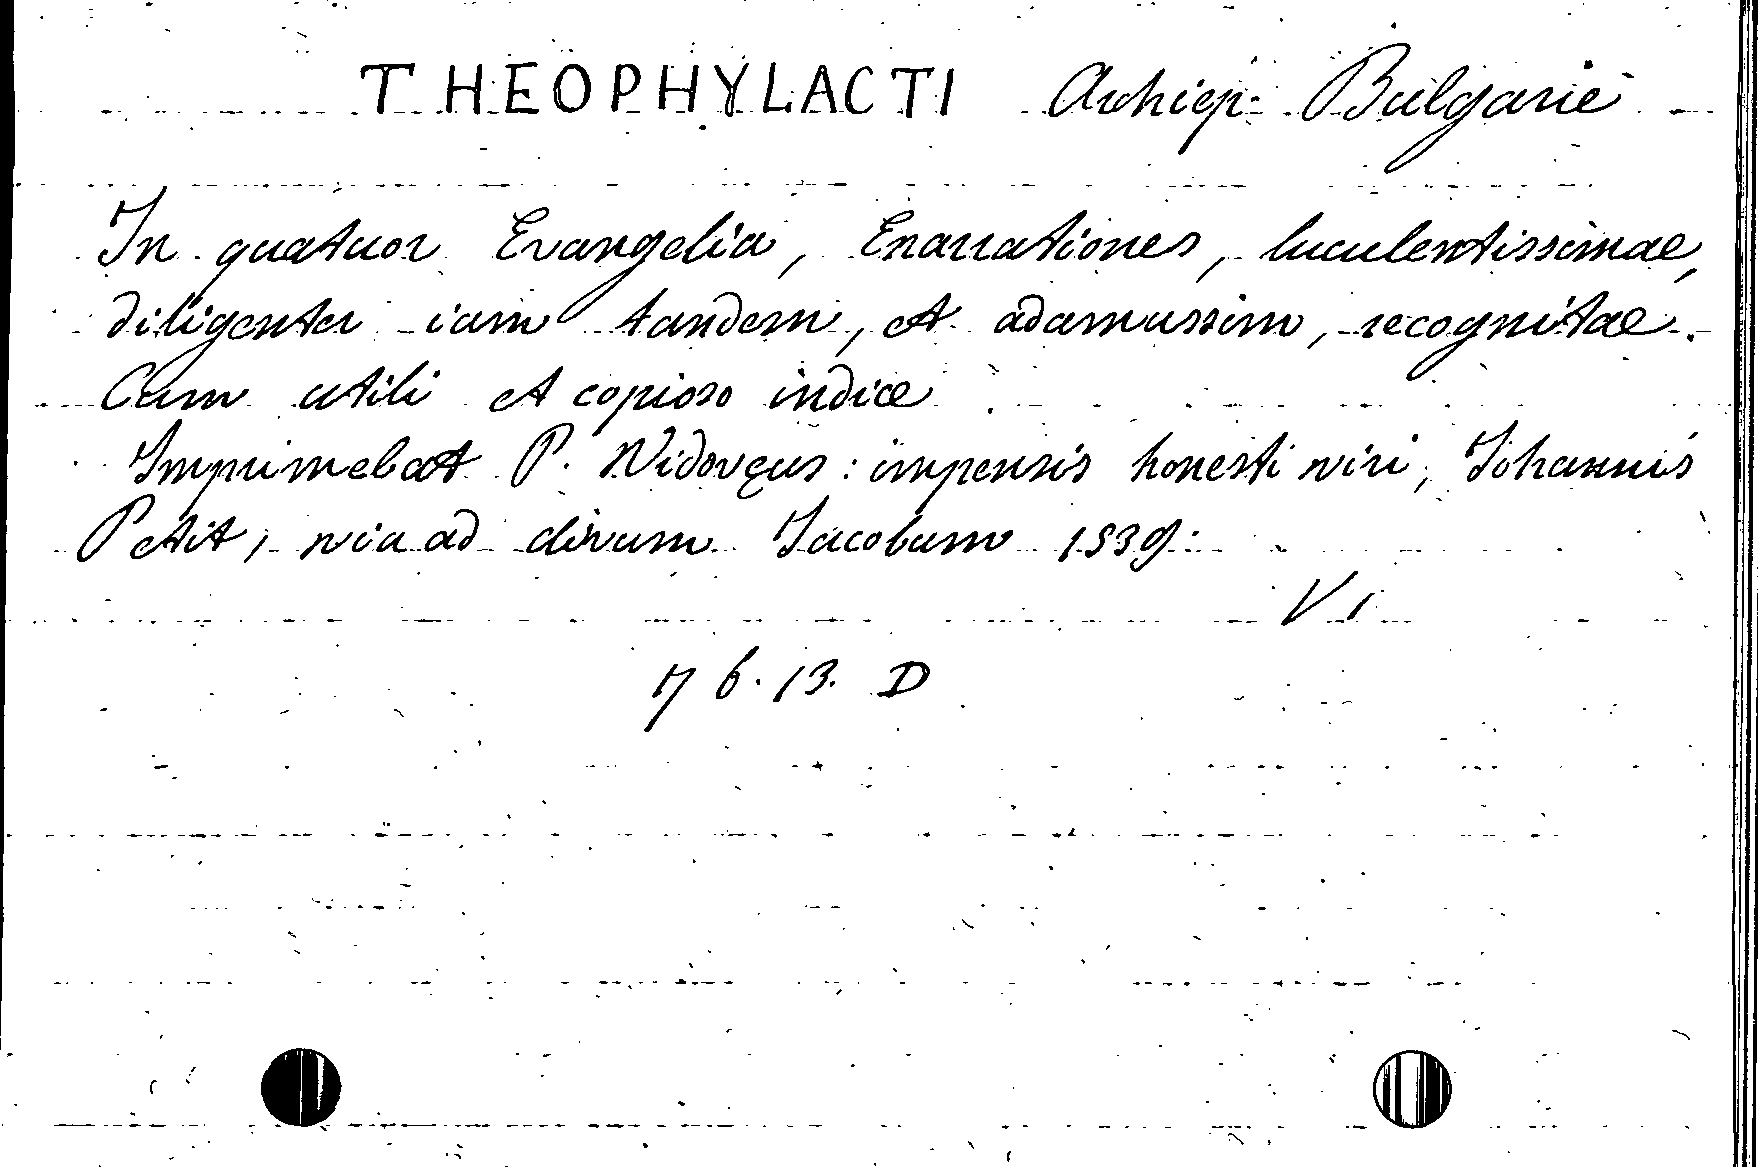 THEOPHYLACTI Archiep. Bulgarie
In quatuor Evangelia, Enarrationes, luculentissimae,
diligenter iam tandem, et adamussim, recognitae.
Cum utili et copioso indice
Imprimebat P. Vidovęus: impensis honesti viri, Iohannis
Petit, via ad divum Jacobum 1539.
V 1
76.13. D